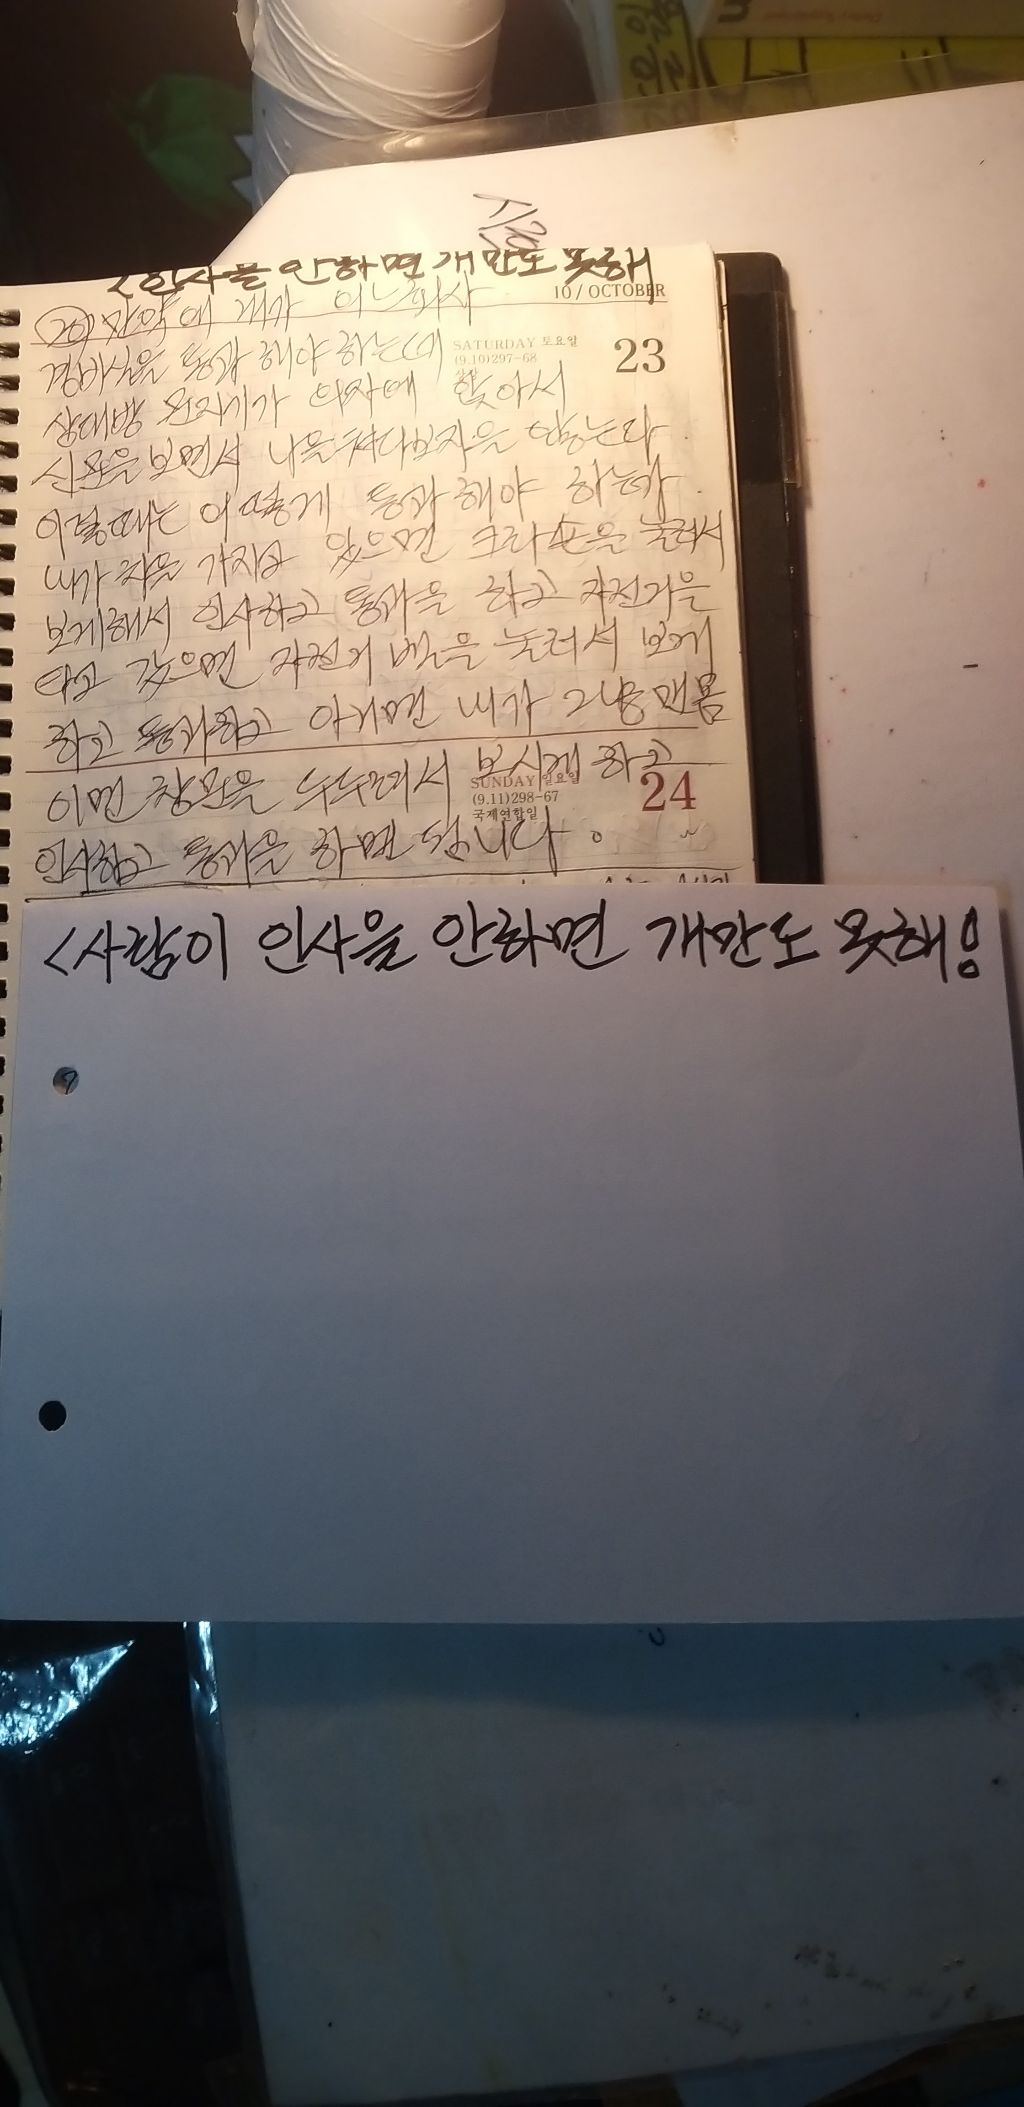 시20
<인사을 안하면 개만도 못해
10/OCTOBER
20) 만약에 내가 어느회사
SATURDAY 토요일
(9.10)297-68
상강
23
경비실을 통과 해야 하는데
상대방 문지기가 의자에 앉아서
신문을 보면서 나을 쳐다보지을 안는다
이럴때는 어떻게 통과 해야 하는가
내가 차을 가지고 있으면 크라숀을 눌러서
보게해서 인사하고 통과을 하고 자전거을
타고 갔으면 자전거 벨을 눌러서 보게
하고 통과하고 아니면 내가 그냥 맨몸
이면 창문을 두두려서 보시게 하고
SUNDAY 일요일
(9.11)298-67
국제연합일
24
인사하고 통과을 하면 됩니다.
<사람이 인사을 안하면 개만도 못해!